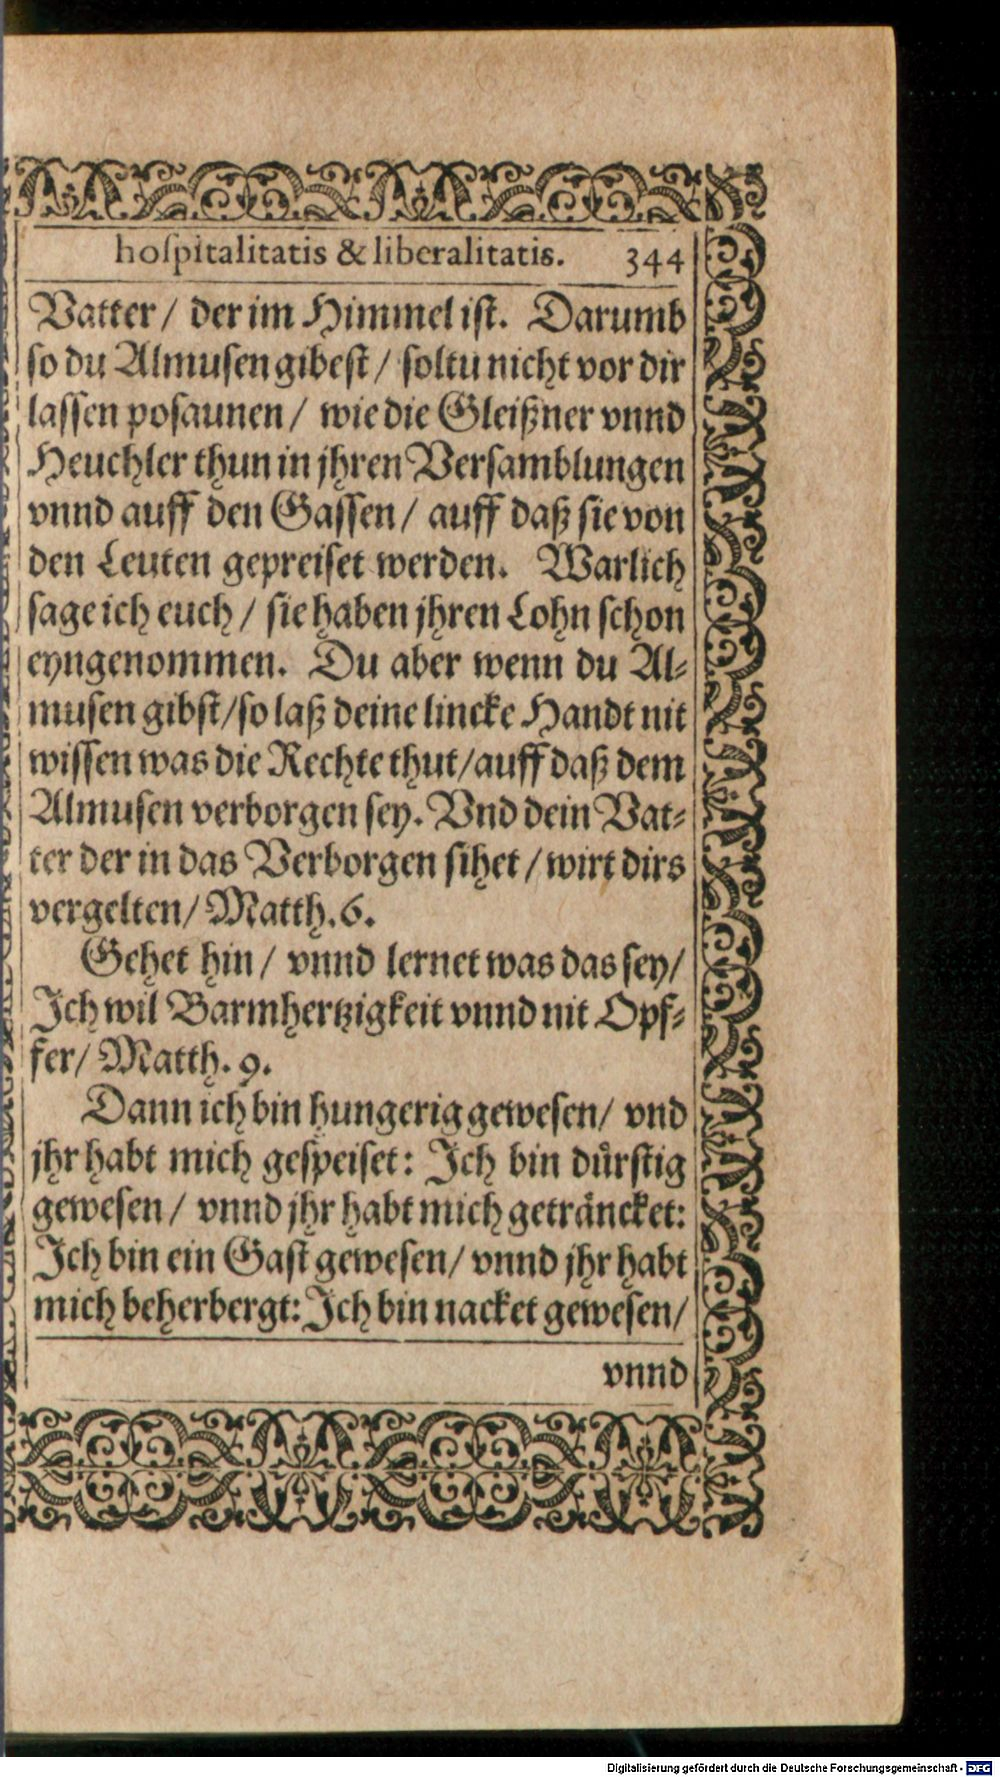 hoſpitalitatis & liberalitatis. 344
Vatter / der im Himmel iſt. Darumb
ſo du Almuſen gibeſt / ſoltu nicht vor dir
laſſen poſaunen / wie die Gleißner vnnd
Heuchler thun in jhren Verſamblungen
vnnd auff den Gaſſen / auff daß ſie von
den Leuten gepreiſet werden. Warlich
ſage ich euch / ſie haben jhren Lohn ſchon
eyngenommen. Du aber wenn du Al⸗
muſen gibſt / ſo laß deine lincke Handt nit
wiſſen was die Rechte thut / auff daß dem
Almuſen verborgen ſey. Vnd dein Vat⸗
ter der in das Verborgen ſihet / wirt dirs
vergelten / Matth. 6.
Gehet hin / vnnd lernet was das ſey /
Ich wil Barmhertzigkeit vnnd nit Opf⸗
fer / Matth. 9.
Dann ich bin hungerig geweſen / vnd
jhr habt mich geſpeiſet: Ich bin duͤrſtig
geweſen / vnnd jhr habt mich getraͤncket:
Ich bin ein Gaſt geweſen / vnnd jhr habt
mich beherbergt: Ich bin nacket geweſen /
vnnd
Digitalisierung gefördert durch die Deutsche Forschungsgemeinschaft - DFG